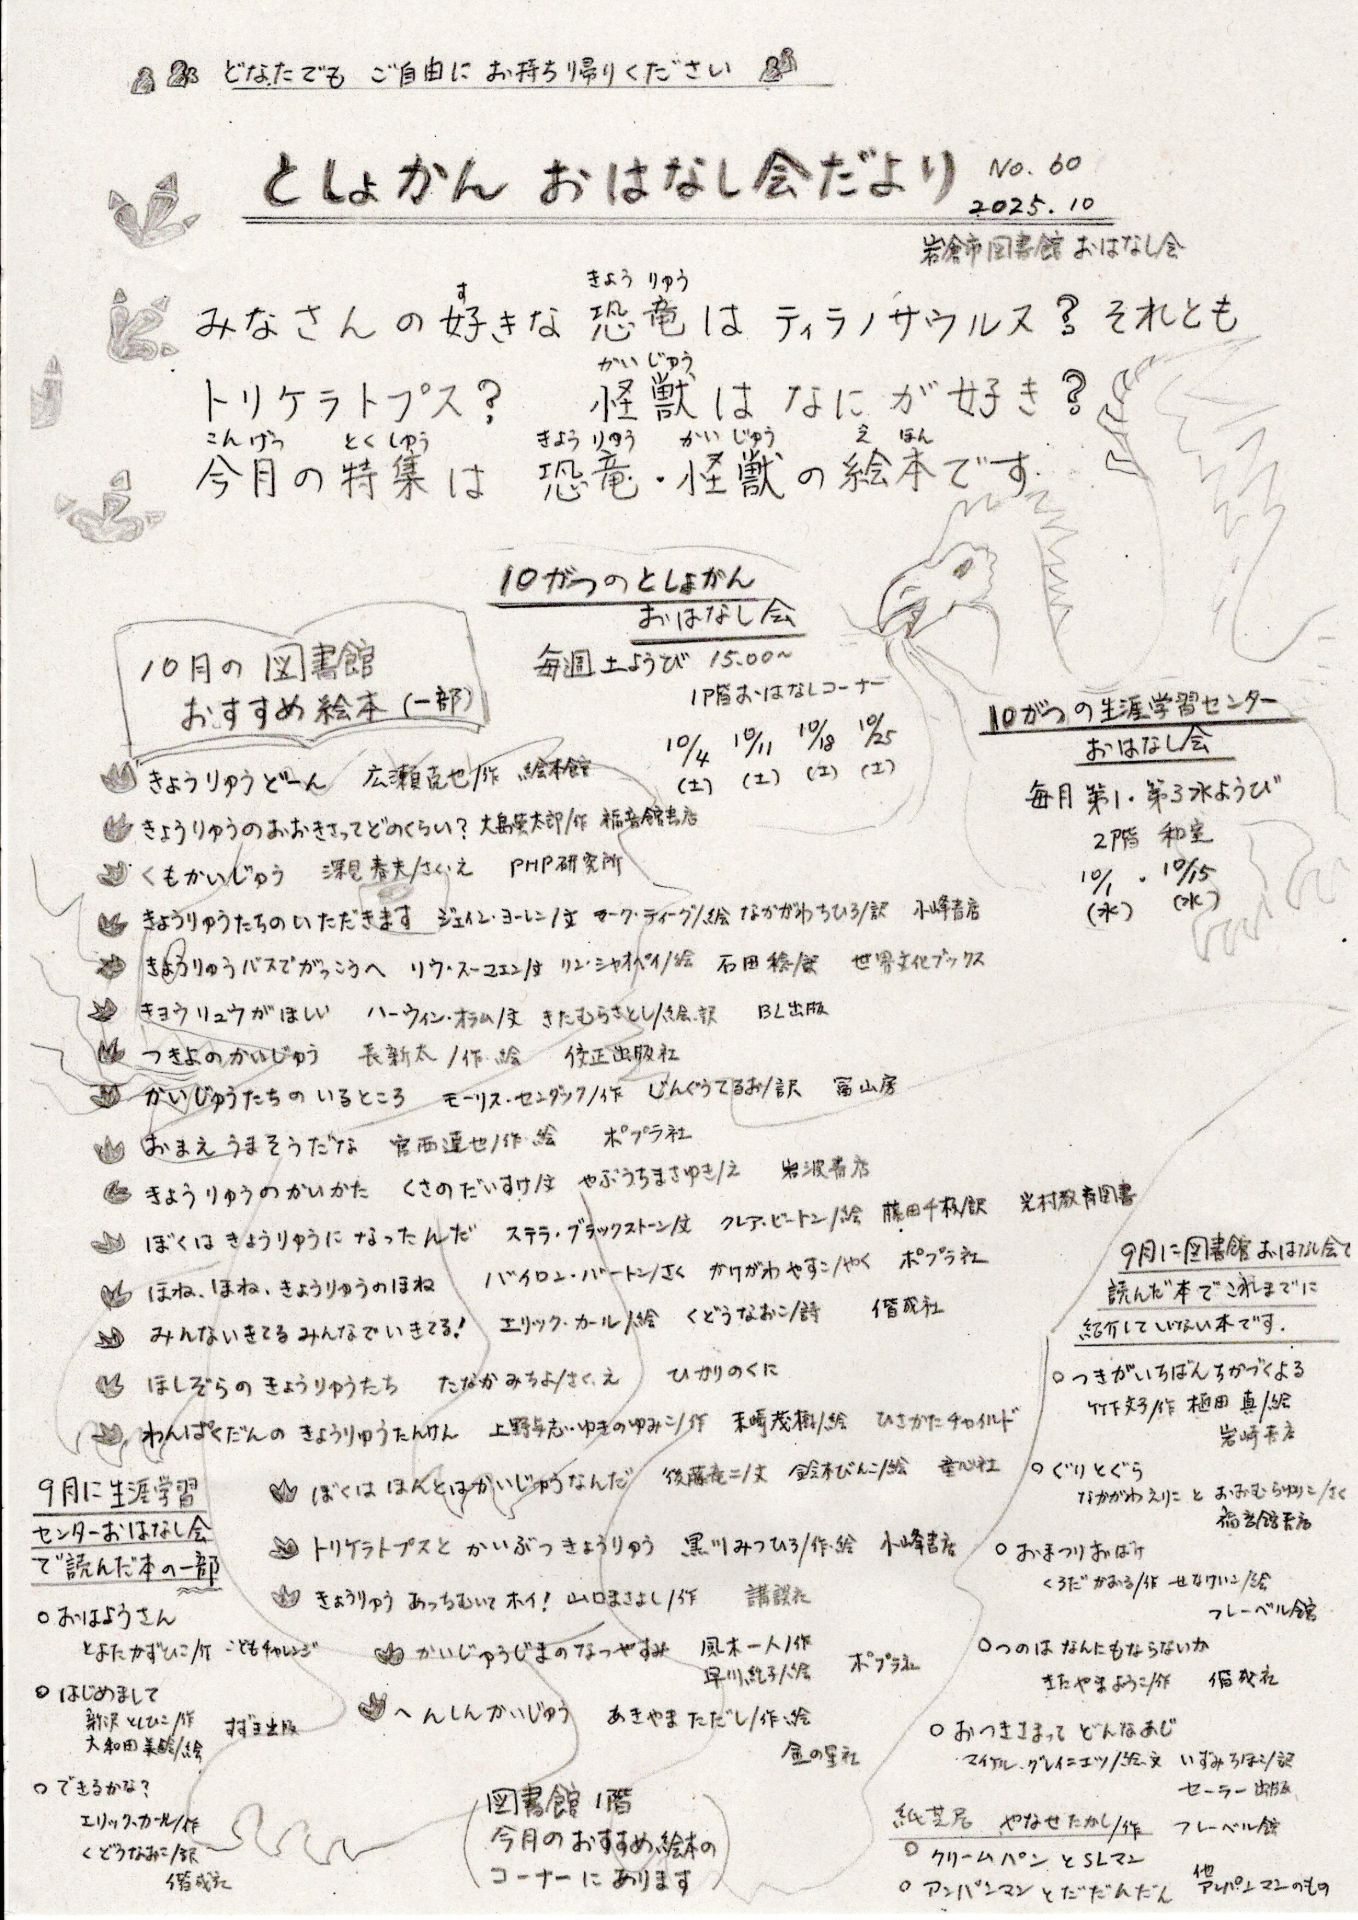 どなたでも ご自由に お持ち帰りください
としょかん おはなし会だより No.60
2025.10
岩倉市図書館 おはなし会
みなさんの好きな恐竜はティラノサウルス？それとも
すきょうりゅう
トリケラトプス？ 怪獣はなにが好き？
かいじゅう
今月の特集は 恐竜・怪獣の絵本です.
こんげつ とくしゅう きょうりゅう かいじゅう えほん
10がつのとしょかん
おはなし会
毎週土ようび 15.00~
1階おはなしコーナー
10/4 10/11 10/18 10/25
(土) (土) (土) (土)
10がつの生涯学習センター
おはなし会
毎月 第1・第3水ようび
2階 和室
10/1 . 10/15
(水) (水)
10月の図書館
おすすめ絵本(一部)
きょうりゅうどーん 広瀬克也/作 絵本館
きょうりゅうのおおきさってどのくらい？ 大島英太郎/作 福音館書店
くもかいじゅう 深見春夫/さく.え PHP研究所
きょうりゅうたちのいただきます ジェイン・ヨーレン/文 マーク・ティーグ/絵 なかがわちひろ/訳 小峰書店
きょうりゅうバスでがっこうへ リウ・スーマエン/文 リン・シャオペイ/絵 石田稔/訳 世界文化ブックス
キョウリュウがほしい ハーウィン・オラム/文 きたむらさとし/絵.訳 BL出版
つきよのかいじゅう 長新太/作.絵 佼正出版社
かいじゅうたちのいるところ モーリス・センダック/作 じんぐうてるお/訳 冨山房
おまえうまそうだな 宮西達也/作.絵 ポプラ社
きょうりゅうのかいかた くさのだいすけ/文 やぶうちまさゆき/え 岩波書店
ぼくはきょうりゅうになったんだ ステラ・ブラックストーン/文 クレア・ビートン/絵 藤田千枝/訳 光村教育図書
ほね、ほね、きょうりゅうのほね バイロン・バートン/さく かけがわやすこ/やく ポプラ社
みんないきてるみんなでいきてる! エリック・カール/絵 くどうなおこ/詩 偕成社
ほしぞらのきょうりゅうたち たなかみちよ/さく.え ひかりのくに
わんぱくだんのきょうりゅうたんけん 上野与志・ゆきのゆみこ/作 末崎茂樹/絵 ひさかたチャイルド
ぼくはほんとはかいじゅうなんだ 後藤竜二/文 鈴木びんこ/絵 童心社
トリケラトプスとかいぶつきょうりゅう 黒川みつひろ/作.絵 小峰書店
きょうりゅうあっちむいてホイ! 山口まさよし/作 講談社
かいじゅうじまのなつやすみ 風木一人/作
早川純子/絵 ポプラ社
へんしんかいじゅう あきやまただし/作.絵
金の星社
図書館1階
今月のおすすめ絵本の
コーナーにあります
9月に生涯学習
センターおはなし会
で読んだ本の一部
○おはようさん
とよたかずひこ/作 こどもチャレンジ
○はじめまして
新沢としひこ/作
大和田美鈴/絵 すずき出版
○できるかな？
エリック・カール/作
くどうなおこ/訳
偕成社
9月に図書館おはなし会で
読んだ本でこれまでに
紹介していない本です.
○つきがいちばんちかづくよる
竹下文子/作 植田真/絵
岩崎書店
○ぐりとぐら
なかがわえりことおおむらゆりこ/さく
福音館書店
○おまつりおばけ
くろだかおる/作 せなけいこ/絵
フレーベル館
○つのはなんにもならないか
きたやまようこ/作 偕成社
○おつきさまってどんなあじ
マイケル・グレイニエツ/絵.文 いずみちほこ/訳
セーラー出版
紙芝居 やなせたかし/作 フレーベル館
○クリームパンとSLマン
○アンパンマンとだだんだん 他アンパンマンのもの